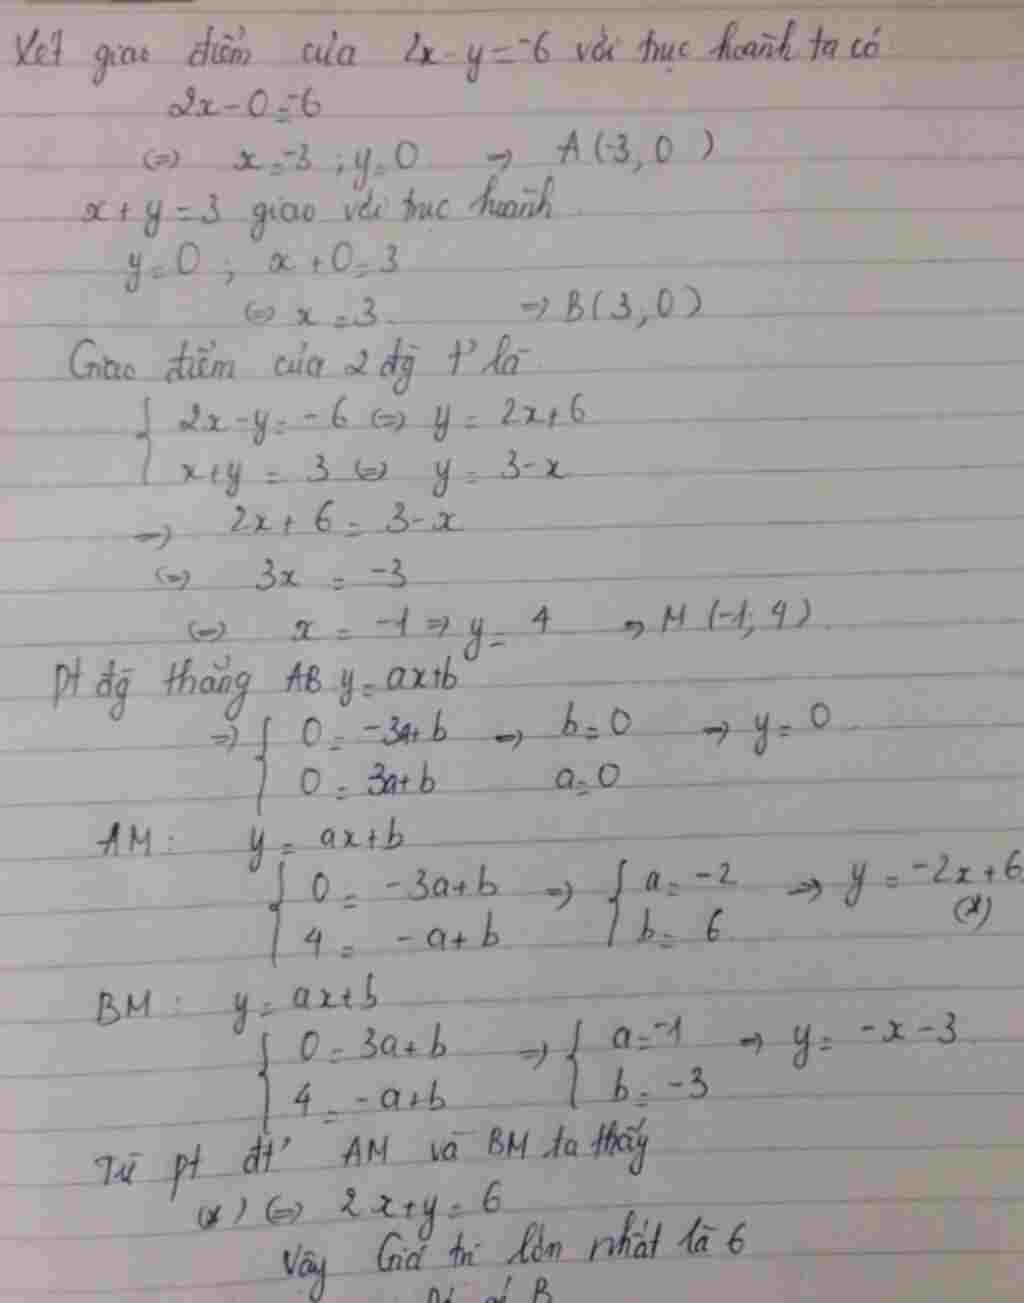 Xét giao điểm của 2x - y = -6 với trục hoành ta có
2x - 0 = -6
(=) x = -3 ; y = 0 => A(-3, 0)
x + y = 3 giao với trục hoành
y = 0 ; x + 0 = 3
(=) x = 3 => B(3, 0)
Giao điểm của 2 đg t' là
{ 2x - y = -6 (=) y = 2x + 6
x + y = 3 (=) y = 3 - x
=) 2x + 6 = 3 - x
(=) 3x = -3
(=) x = -1 => y = 4 => M(-1; 4)
Pt đg thẳng AB y = ax + b
=> { 0 = -3a + b => b = 0 => y = 0
0 = 3a + b a = 0
AM : y = ax + b
{ 0 = -3a + b => { a = -2 => y = -2x + 6
4 = -a + b b = 6 (*)
BM : y = ax + b
{ 0 = 3a + b => { a = -1 => y = -x - 3
4 = -a + b b = -3
Từ pt đt' AM và BM ta thấy
(*) (=) 2x + y = 6
Vậy Giá trị lớn nhất là 6
B